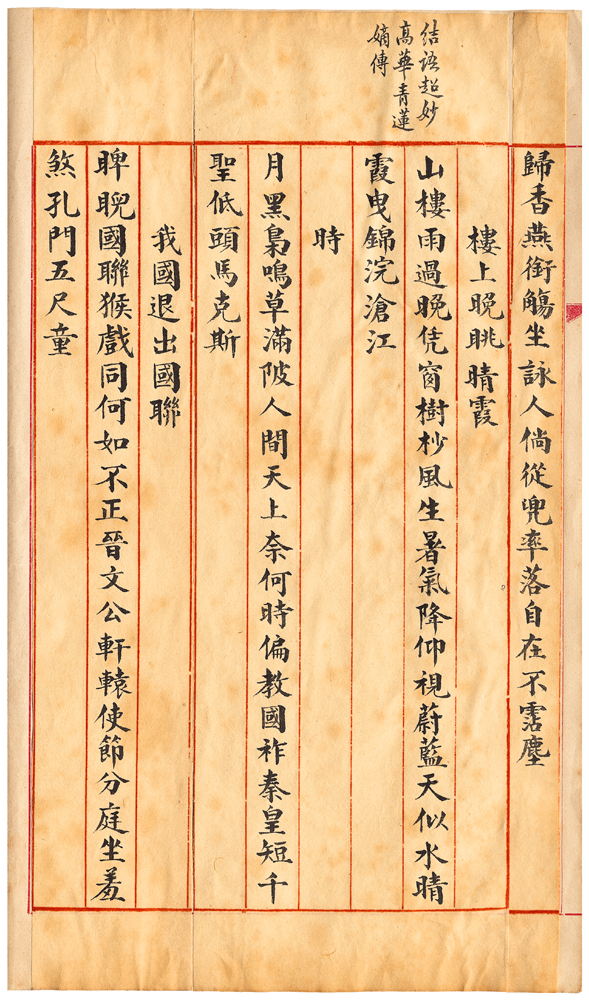 結語超妙
高華青蓮
嫡傳
歸香燕銜觴坐詠人倘從兜率落自在不霑塵
樓上晚眺晴霞
山樓雨過晚凭窗樹杪風生暑氣降仰視蔚藍天似水晴
霞曳錦浣滄江
時
月黑梟鳴草滿陂人間天上奈何時偏教國祚秦皇短千
聖低頭馬克斯
我國退出國聯
睥睨國聯猴戲同何如不正晉文公軒轅使節分庭坐羞
煞孔門五尺童